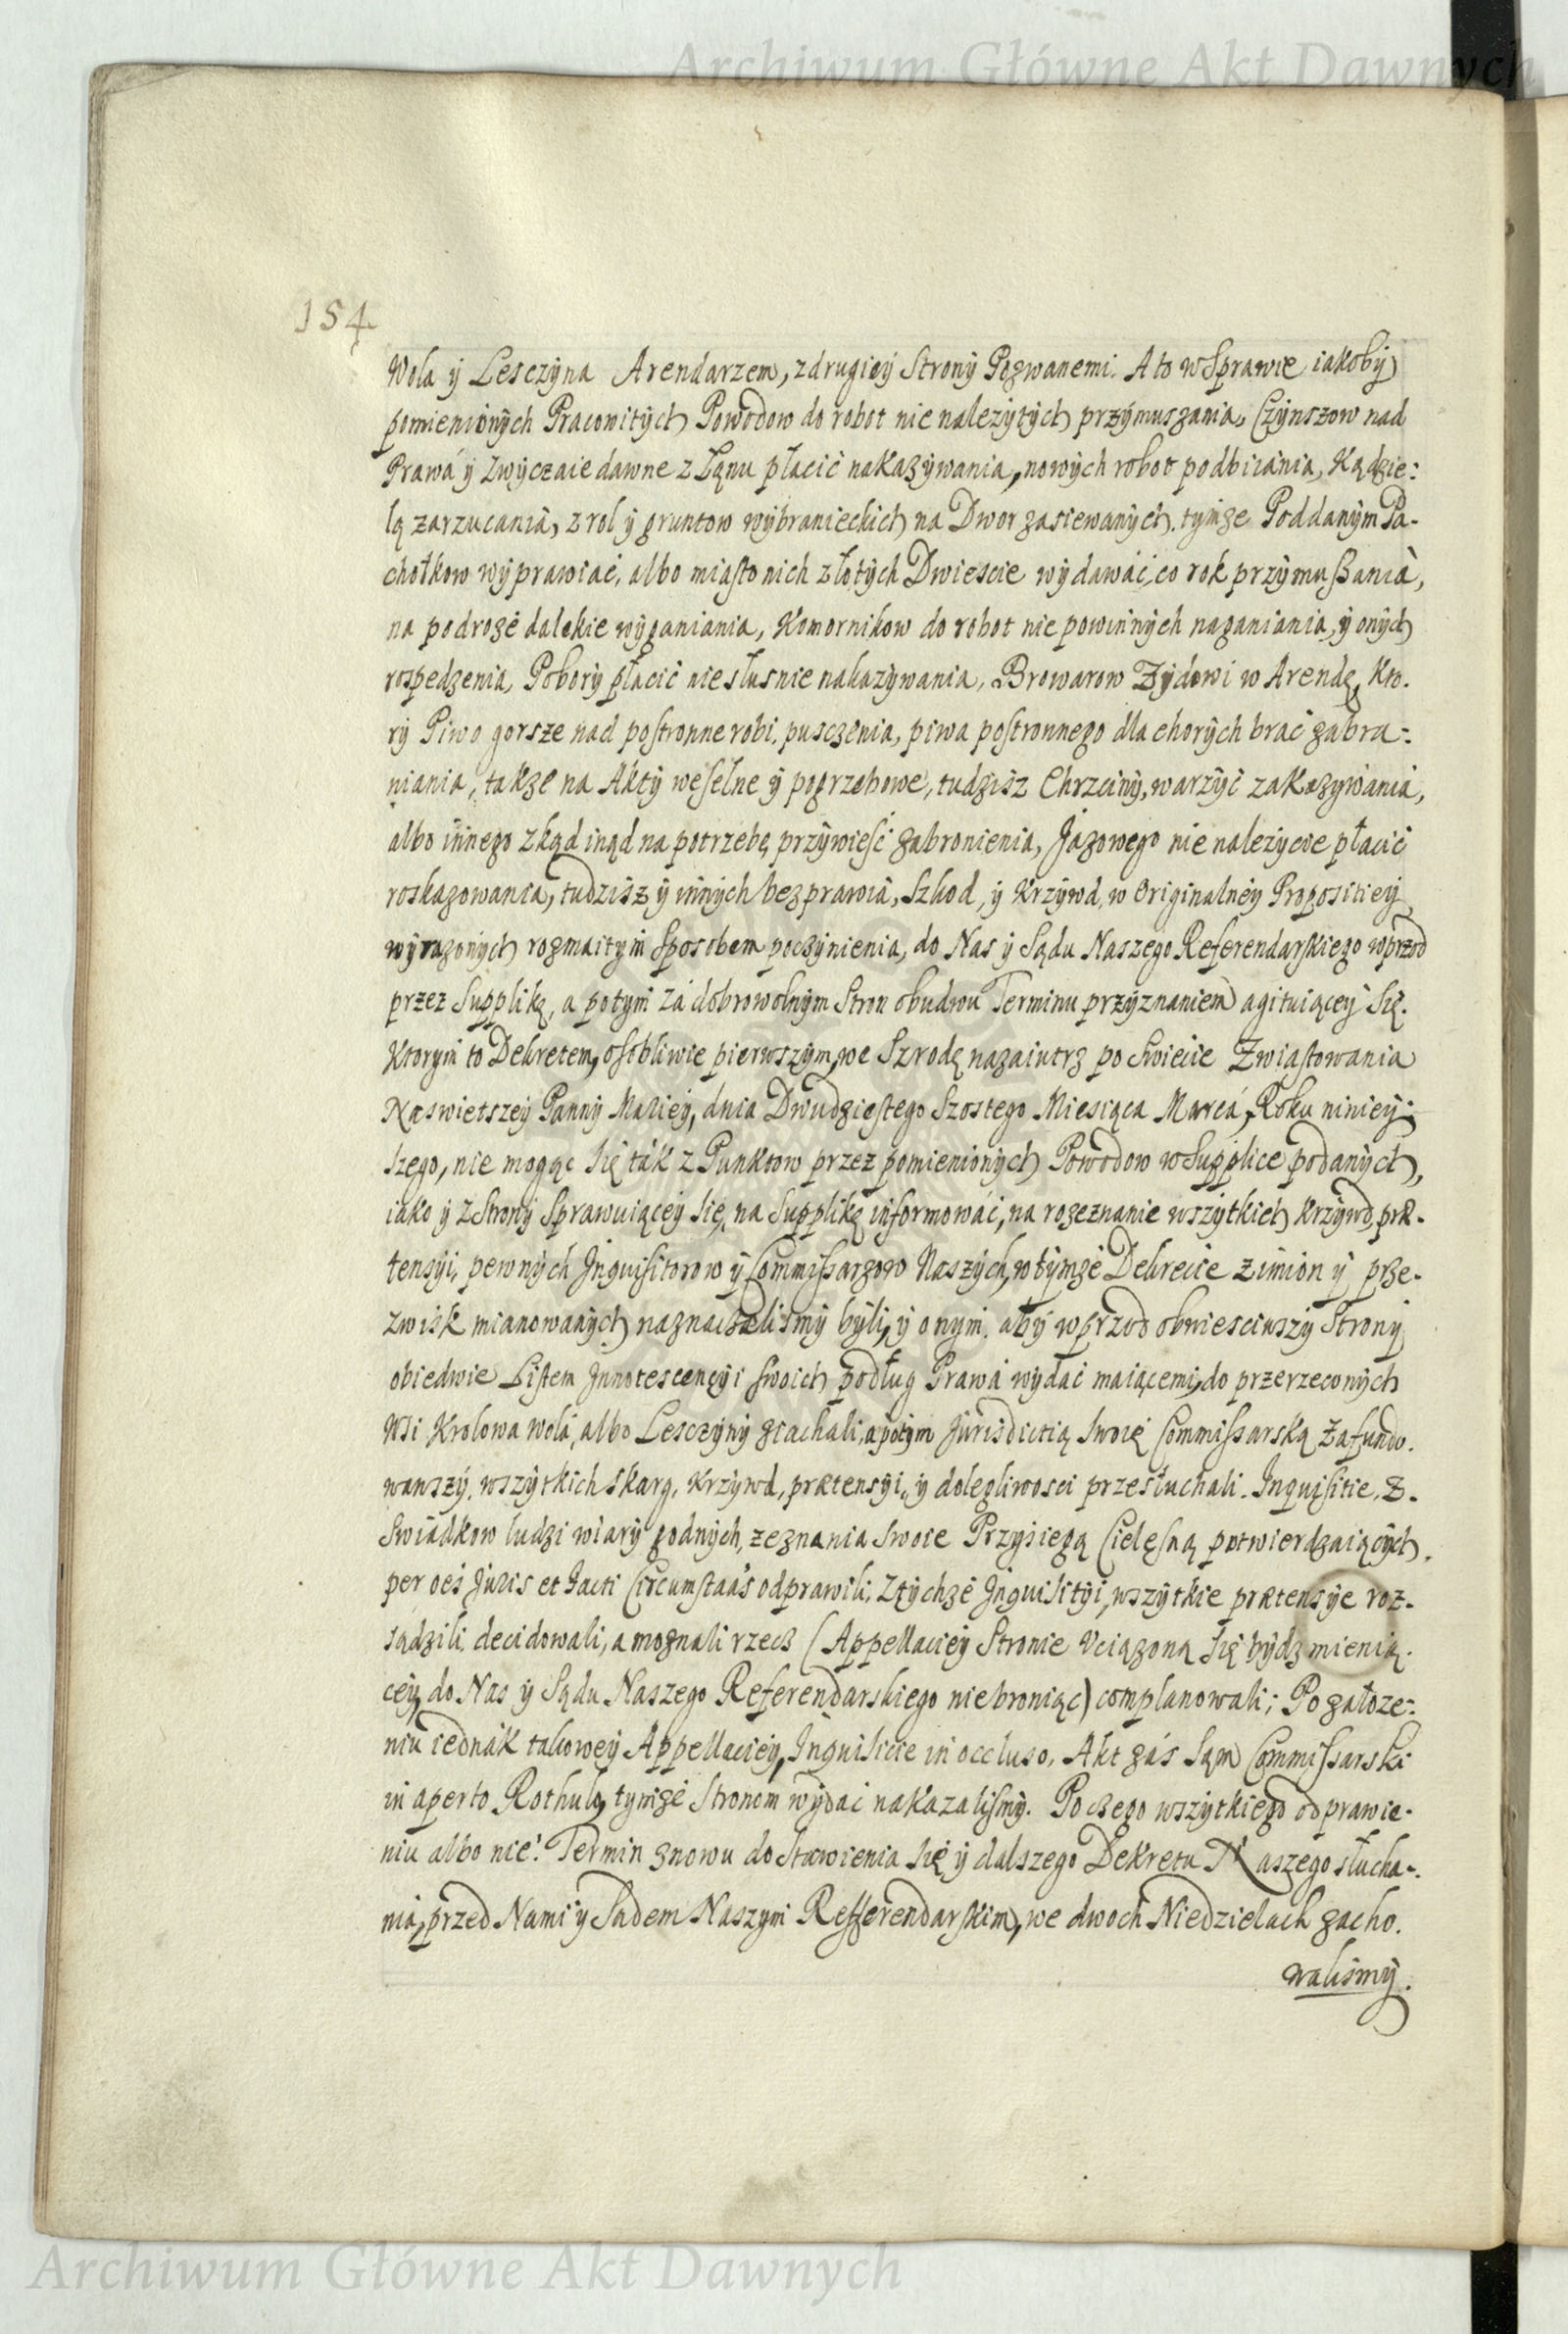 Archiwum Główne Akt Dawnych
154
Wola ÿ Lesczÿna Arendarzem, z drugieÿ Stronÿ Pozwanemi. A to w Sprawie iakobÿ
pomienionÿch Pracowitÿch Powodow do robot nie należÿtÿch przÿmuszania, Czÿnszow nad
Prawá ÿ Zwÿczaie dawne z Łanu płacić nakazÿwania, nowÿch robot podbiiania, Kądzie:
lą zarzucania, z rol ÿ gruntow wÿbranieckich na Dwor zasiewanÿch. tÿmże Poddanÿm Pa-
chołkow wÿprawiać, albo miasto nich złotÿch Dwiescie wÿdawáć, co rok przÿmuszania,
na podroże dalekie wÿganiania, Komornikow do robot nie powinnÿch naganiania, ÿ onÿch
rospedzenia, Poborÿ płacić niesłusnie nakazÿwania, Browarow Żÿdowi w Arendę, Kto-
rÿ Piwo gorsze nad postronne robi, pusczenia, piwa postronnego dla chorÿch brać zabra:
niania, także na Aktÿ weselne ÿ pogrzebowe, tudzisz Chrzcinÿ, warzÿć zakazÿwania,
albo innego zkąd inąd na potrzebę przÿwieść zabronienia, Jazowego nie należÿcie płacić
roskazowania, tudzisz ÿ innÿch bezprawia, Szkod, ÿ Krzÿwd, w Originalneÿ Propositieÿ
wÿrażonÿch rozmaitÿm Sposobem poczÿnienia, do Nas ÿ Sądu Naszego Referendarskiego wprzod
przez Supplikę, a potÿm za dobrowolnÿm Stron obudwu Terminu przÿznaniem agituiąceÿ Się.
Ktorÿm to Dekretem, osobliwie pierwszÿm, we Szrodę nazaiutrz po Swiecie Zwiastowania
Naswietszeÿ Pannÿ Marieÿ, dnia Dwudziestego Szostego Miesiąca Marcá, Roku ninieÿ:
szego, nie mogąc się ták z Punktow przez pomienionÿch Powodow w Supplice podanÿch,
iako ÿ z Stronÿ Sprawuiąceÿ się, na Supplikę informowáć, na rozeznanie wszÿtkich Krzÿwd, præ-
tensÿi, pewnÿch Inquisitorow ÿ Commissarzow Naszÿch, w tÿmże Dekrecie z imion ÿ prze-
zwisk mianowanÿch naznaczÿlismÿ bÿli, ÿ onÿm. abÿ wprzod obwiesciwszÿ Stronÿ
obiedwie Listem Innotescencÿi swoich podług Prawá wÿdać maiącemi, do przerzeconÿch
Wsi Krolowa wolá, albo Lesczÿnÿ ziachali, a potÿm Jurisdictią Swoię Commissarską zafundo-
wanszÿ. wszÿtkich skarg, Krzÿwd, prætensÿi, ÿ dolegliwosci przesłuchali. Inquisitie, z
Swiadkow ludzi wiarÿ godnÿch, zeznania swoie Przÿsięgą Cielęsną potwierdzaiącÿch,
per oes Juris et Facti Circumstaās odprawili, Z tÿchże Inquisitÿi, wszÿtkie prætensÿe roz-
sądzili, decidowali, a mognali rzecz (Appellacieÿ Stronie Uciążoną się bÿdz mienią-
ceÿ, do Nas ÿ Sądu Naszego Referendarskiego niebroniąc) complanowali; Po załoze:
niu iednák takoweÿ Appellacieÿ, Inquisitie in occluso, Akt záś Sąm Commissarski
in aperto Rothulo, tÿmże Stronom wÿdać nakazalismÿ. Po czego wszÿtkiego odprawie-
niu albo nie! Termin znowu do Stawienia się ÿ dalszego Dekretu Naszego słucha-
nia, przed Nami ÿ Sądem Naszÿm Refferendarskim, we dwoch Niedzielach zacho-
walismÿ.
Archiwum Główne Akt Dawnych